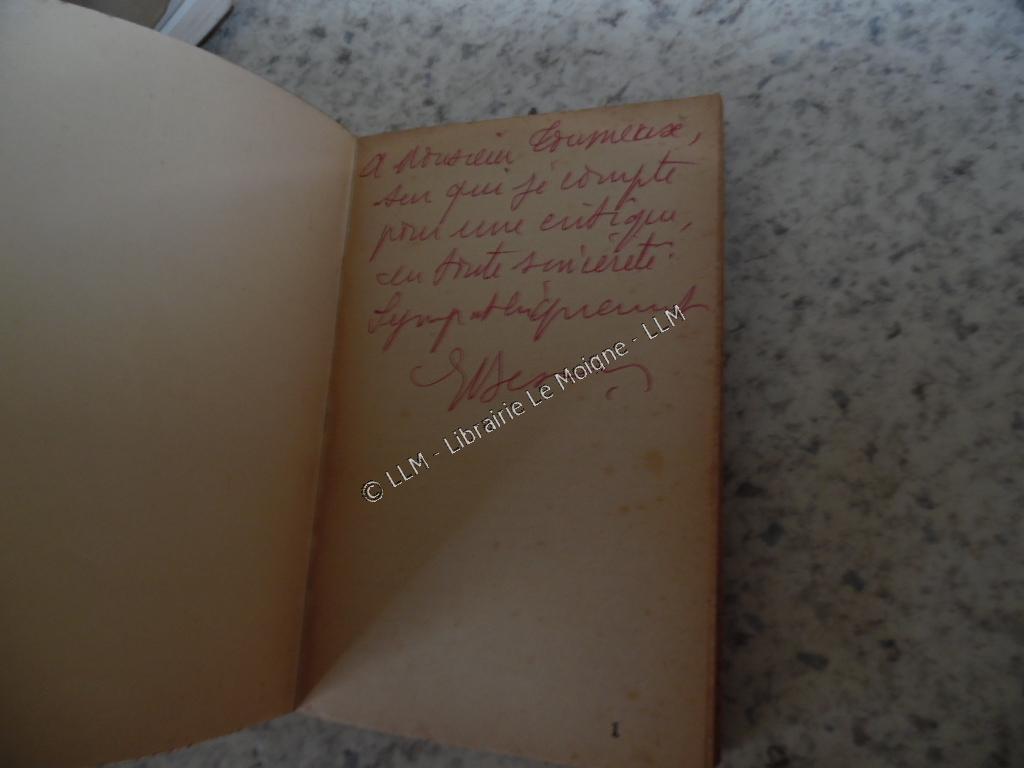 A Monsieur Tourneux,
sur qui je compte
pour une critique,
en toute sincérité.
Sympathiquement
© LLM - Librairie Le Moigne - LLM
1